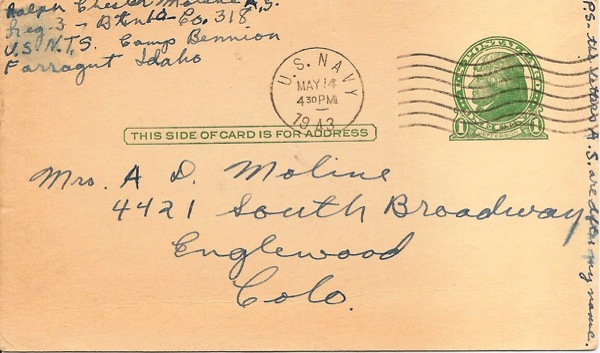 Ralph Chester Moline A.S.
Reg-3- Btn-6-Co. 318
U.S.N.T.S. Camp Bennion
Farragut Idaho
U.S. NAVY
MAY 14
430PM
1943
U.S. POSTAL CARD
1 JEFFERSON 1
THIS SIDE OF CARD IS FOR ADDRESS
Mrs. A D. Moline
4421 South Broadway
Englewood
Colo.
P.S. the letters A.S. are after my name.